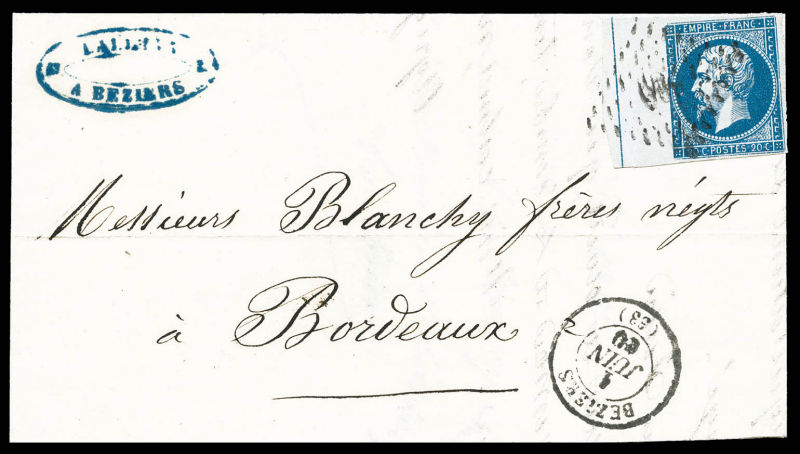 A BEZIERS
EMPIRE FRANC
20 C POSTES 20 C
Messieurs Blanchy frères négts
à
Bordeaux
BEZIERS
1
JUIN
60
(33)